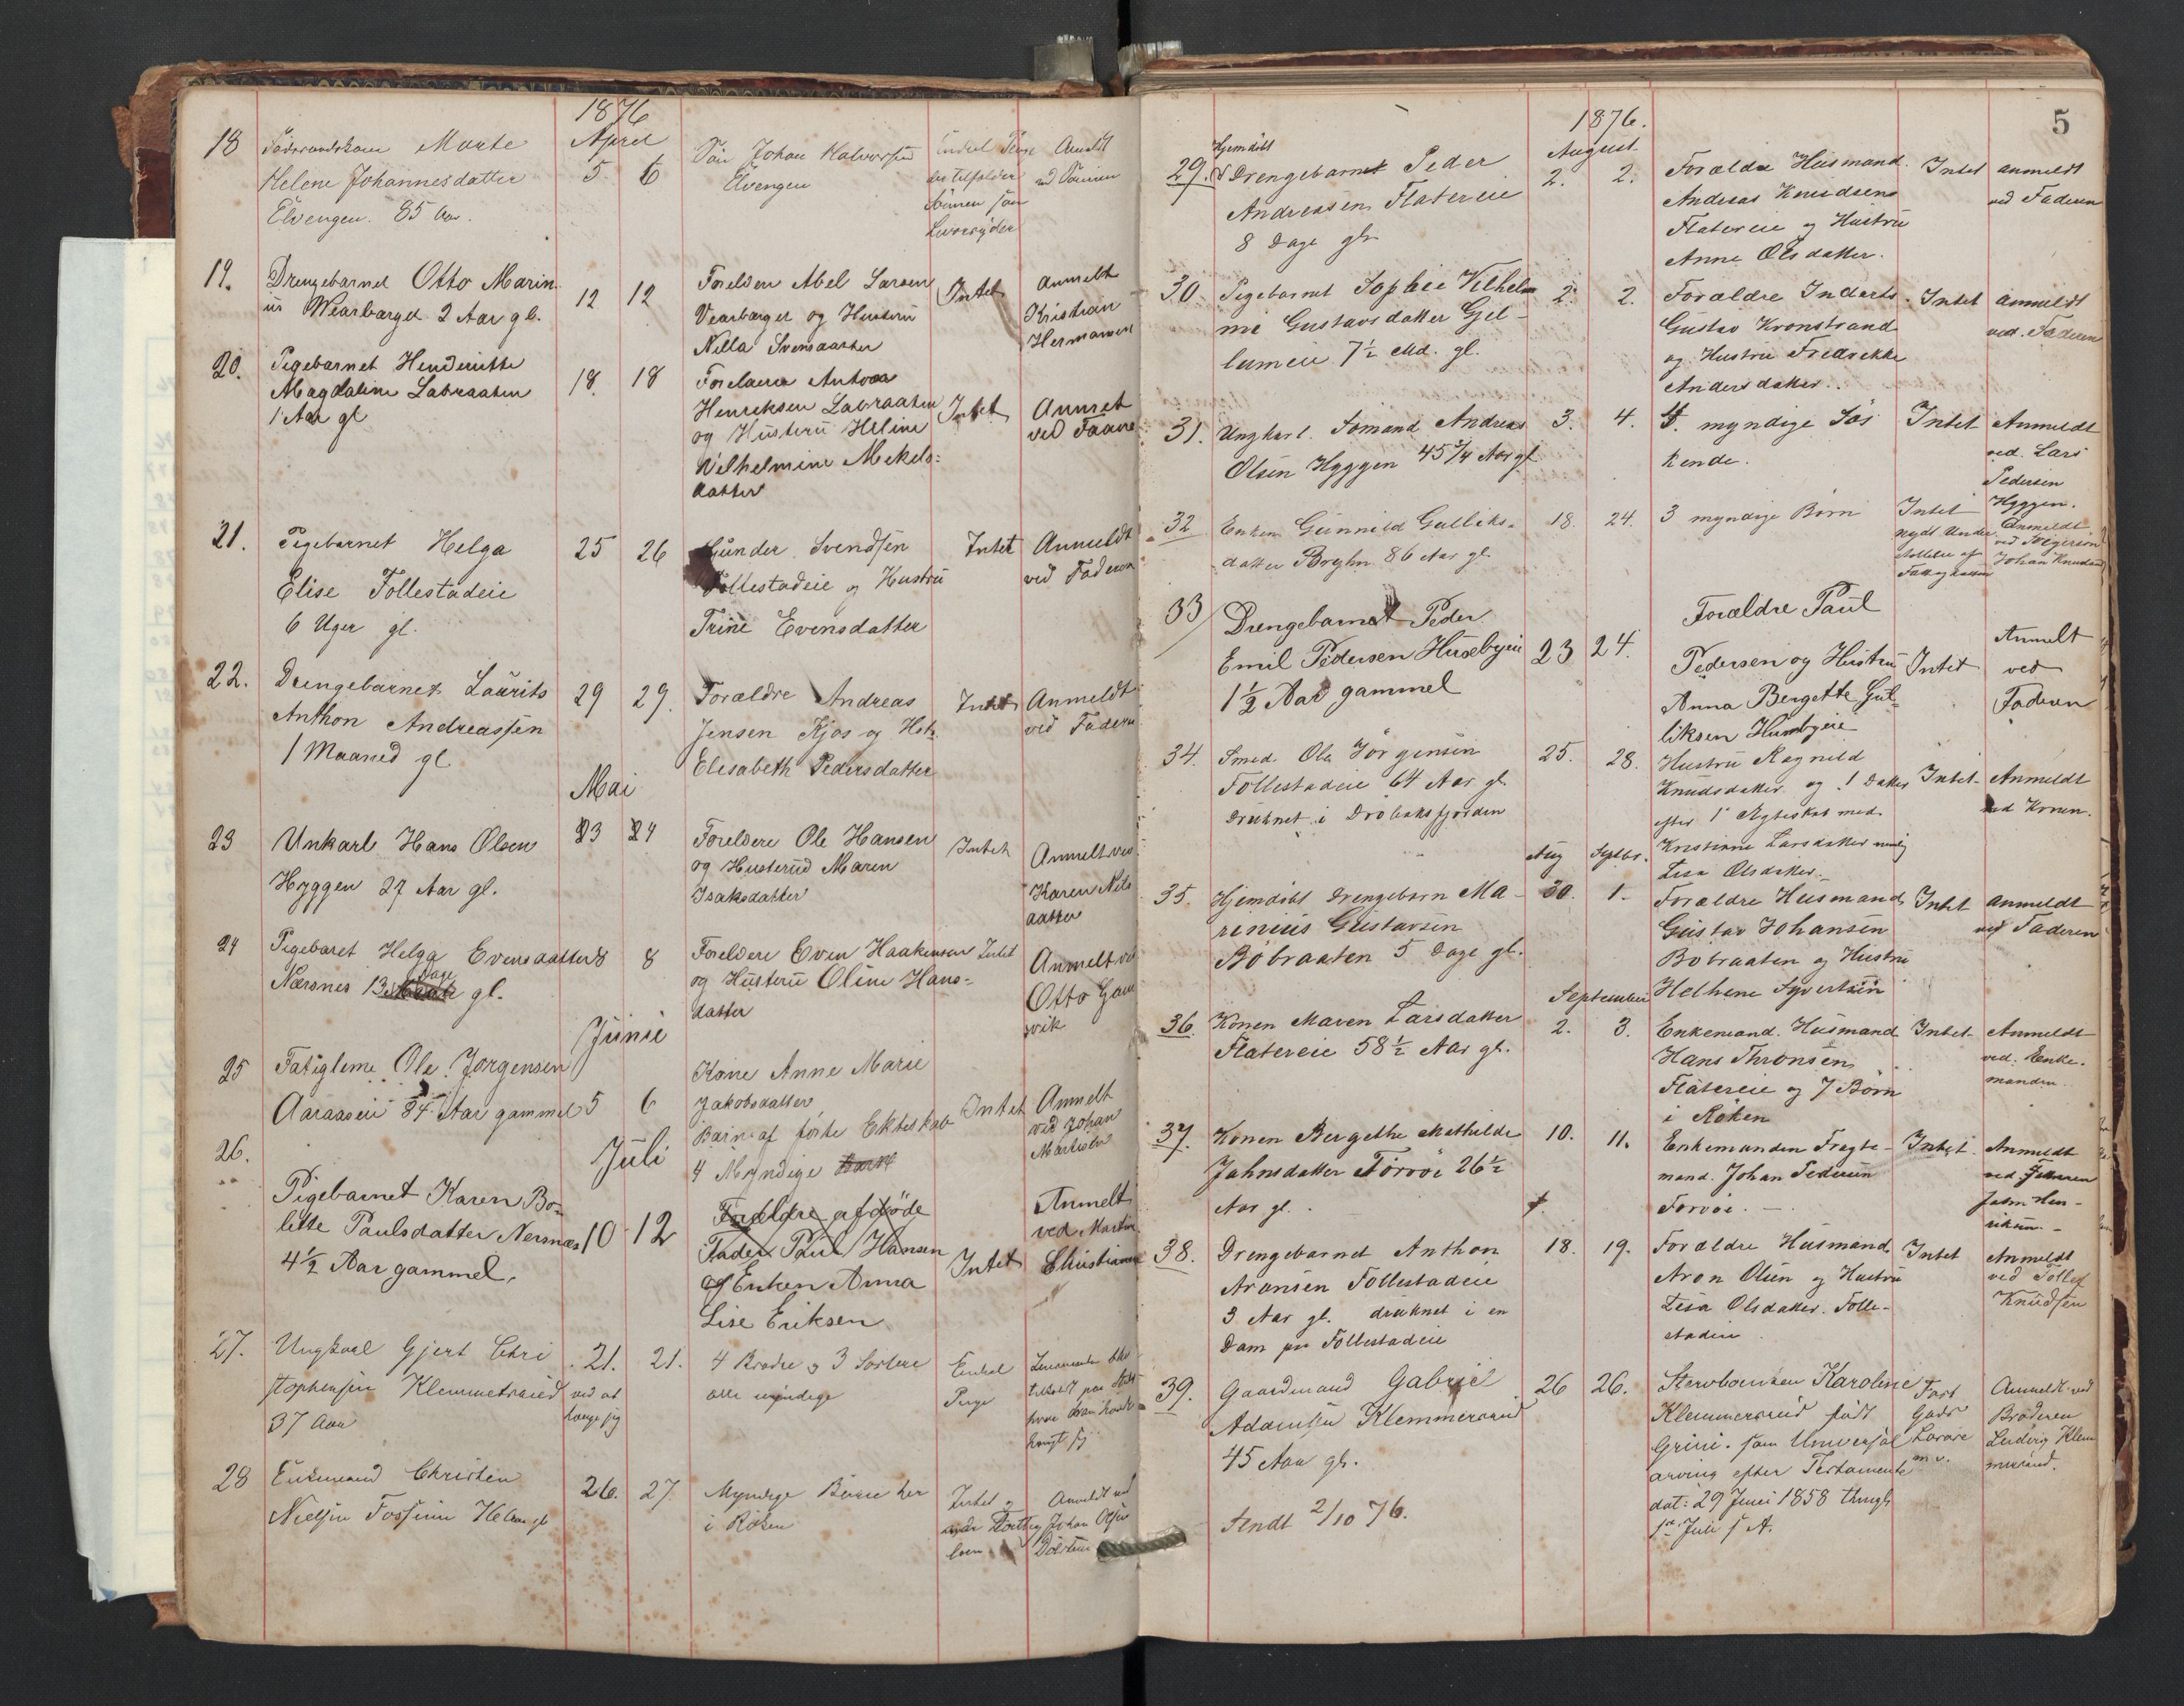 1876
April
18 Madame Marte
Helene Johannesdatter
Elvengen. 85 Aar.
5. 6
Søn Johan Halvorsen
Elvengen
der tilfalder
Sønnen som
Anmeldt
ved Sønnen
19. Drengebarnet Otto Marin
ius Wearbarget 2 Aar gl.
12 12
Foreldern Abel Larsen
Vearbarget og Husteru
Nilla Svensdatter
Intet
Anmelt
Kristian
Hermansen
20. Pigebarnet Henderitte
Magdaline Labraaten
1 Aar gl
18. 18
Henreksen Labraaten
og Husteru Heline
Vilhelmine Mekels-
datter
Intet
Anmet
ved
21. Pigebarnet Helga
Elise Follestadeie
6 Uger gl.
25 26
Gunder Svendsen
Follestadeie og Hustru
Trine Evensdatter
Intet
Anmeldt
ved Faderen
22. Drengebarnet Laurits
Anthon Andreassen
1 Maaned gl
29 29.
Forældre Andreas
Jensen Kjos og Hst.
Elisabeth Pedersdatter
Intet
Anmeldt
ved Faderen
Mai
23 Unkarl Hans Olsen
Hyggen 27 Aar gl.
23 24
Foreldere Ole Hansen
og Husterud Maren
Isaksdatter
Intet
Anmelt ved
Karen Nils
datter
24 Pigebaret Helga Evensdatter
Nærsnes 13 Dage gl.
8 8
Foreldere Even Haakensen
og Husteru Oline Hans-
datter
Intet
Anmelt ved
Otto Gam
vik
Junie
25 Fatiglem Ole Jorgensen
Aaraaseie 84 Aar gammel
5 6
Kone Anne Marie
Jakobsdatter
Barn af förte Ekteskab
4 Myndige Barn
Intet
Anmelt
ved Johan
Martisen
Juli
26.
Pigebarnet Karen Bo-
lette Paulsdatter Nersnæs
4½ Aar gammel.
10 12
Forældre afdöde
Fader Paul Hansen
og Enken Anna
Lise Eriksen
Intet
Anmelt
ved Martin
Christiansen
27. Ungkarl Gjert Chri
stophensen Klemmetsrud
37 Aar
21. 21.
ved at
hænge sig
4 Brødre og 3 Søstere
alle myndige
Enkel
Penge
28 Enkemand Christen
Nielsen Fossum
26. 27.
Myndige Børn her
i Røken
Intet
Anmeldt ved
Johan Olsen
1876.
5
August
29. Hjemdøbt
Drengebarnet Peder
Andreasen Flatereie
8 Dage gl.
2. 2.
Forældre Husmand
Andreas Knudsen
Flatereie og Hustru
Anne Olsdatter.
Intet
anmeldt
ved Faderen
30. Pigebarnet Sophie Vilhelm
ine Gustavsdatter Gjel-
lumeie 7½ Md. gl.
2. 2.
Forældre Inderts.
Gustav Kronstrand
og Hustru Fredrekke
Andersdatter.
Intet
anmeldt
ved. Faderen
31. Ungkarl. Sømand Andreas
Olsen Hyggen 45¾ Aar gl
3. 4.
4. myndige Søs
kende.
Intet
Anmeldt
ved. Lars
Pedersen
Hyggen.
32 Enken Gunnild Gulliks-
datter Bryhn 86 Aar gl.
18. 24.
3 myndige Børn
Intet
nydt Under
støttelse af
Fattigkassen
Anmeldt
Johan Knudsen
33
Drengebarnet Peder
Emil Pedersen Husebyeie
1½ Aar gammel
23 24.
Forældre Paul
Pedersen og Hustru
Anna Bergette Gul-
liksen Husebyeie
Intet
Anmelt
ved
Faderen
34. Smed. Ole Jörgensen
Follestadeie 64 Aar gl.
druknet i Drøbaksfjorden
25. 28.
Hustru Ragnild
Knudsdatter og 1 Datter
efter 1 Ægteskab med
Kristiane Larsdatter nemlig
Lisa Olsdatter.
Intet
Anmeldt
ved Konen.
Aug Septbr.
35. Hjemdöbt Drengebarn Ma-
rinius Gustavsen
Bøbraaten 5 Dage gl.
30. 1.
Forældre Husmand
Gustav Johansen
Bobraaten og Hustru
Helhene Syvertsen
Intet
anmeldt
ved Faderen
September
36. Konen Maren Larsdatter
Flatereie 58½ Aar gl.
2. 3.
Enkemand. Husmand
Hans Thronsen
Flatereie og 7 Børn
i Röken
Intet
Anmeldt
ved. Enke-
manden.
37. Konen Bergethe Mathilde
Jahnsdatter Førvöe 26½
Aar gl.
10. 11.
Enkemanden Fragte-
mand. Johan Pedersen
Førvöe.
Intet
Anmeldt
ved Faderen
Jahn Hen-
riksen.
38. Drengebarnet Anthon
Aronsen Follestadeie
3 Aar gl. druknet i en
Dam paa Follestadeie
18. 19.
Forældre Husmand
Aron Olsen og Hustru
Lisa Olsdatter. Folle-
stadeie
Intet
Anmeldt
ved Tollef
Knudsen
39. Gaardmand Gabriel
Adamsen Klemmersrud
45 Aar gl.
26 26.
Stervboenken Karoline
Klemmersrud født
Grini. som Universal
arving efter Testamente
dat: 29 Juni 1858 thingl.
1ste Juli s. A.
Fast
Gods
Løsøre
m.v.
Anmeldt ved
Broderen
Ludvig Klem
mersrud.
Sendt 2/10 76.